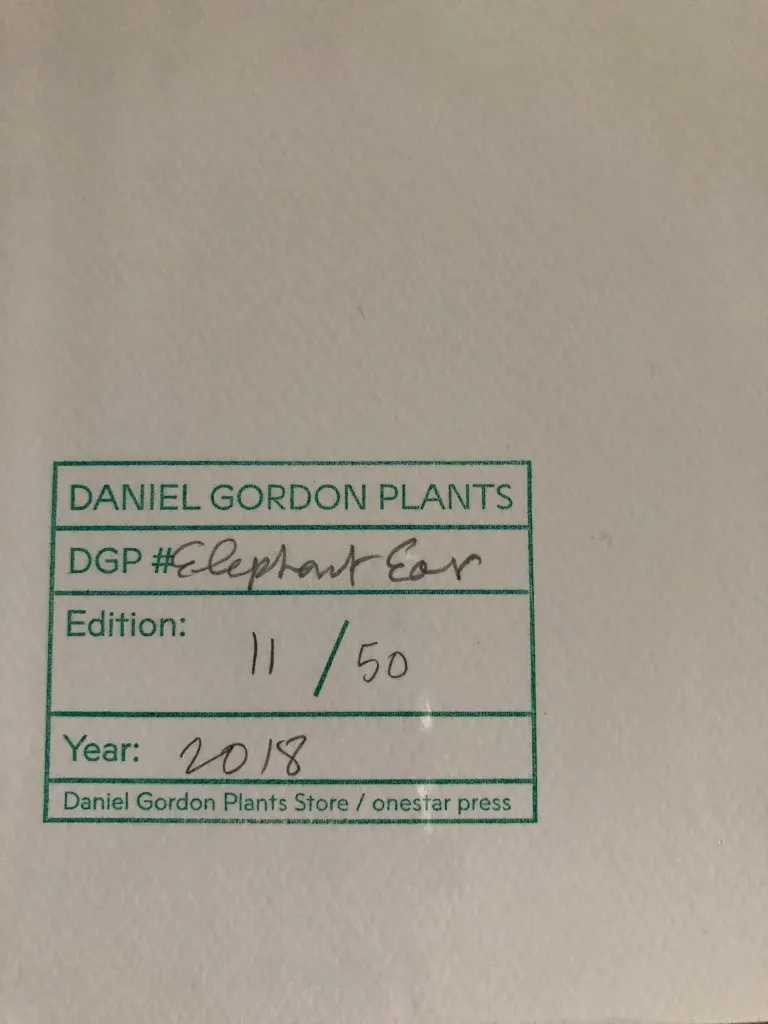 DANIEL GORDON PLANTS
DGP #Elephant Ear
Edition: 11 / 50
Year: 2018
Daniel Gordon Plants Store / onestar press